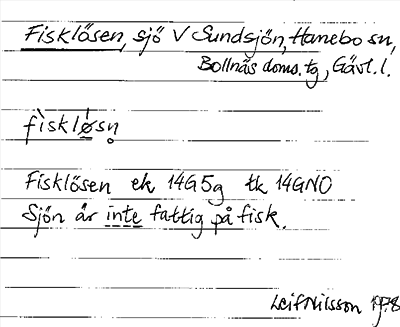 Fisklösen, sjö V Sundsjön, Hanebo sn,
Bollnäs doms.tg, Gävl.l.
fìsklø̀sn̥
Fisklösen ek 14G5g tk 14GNO
Sjön är inte fattig på fisk.
Leif Nilsson 1978